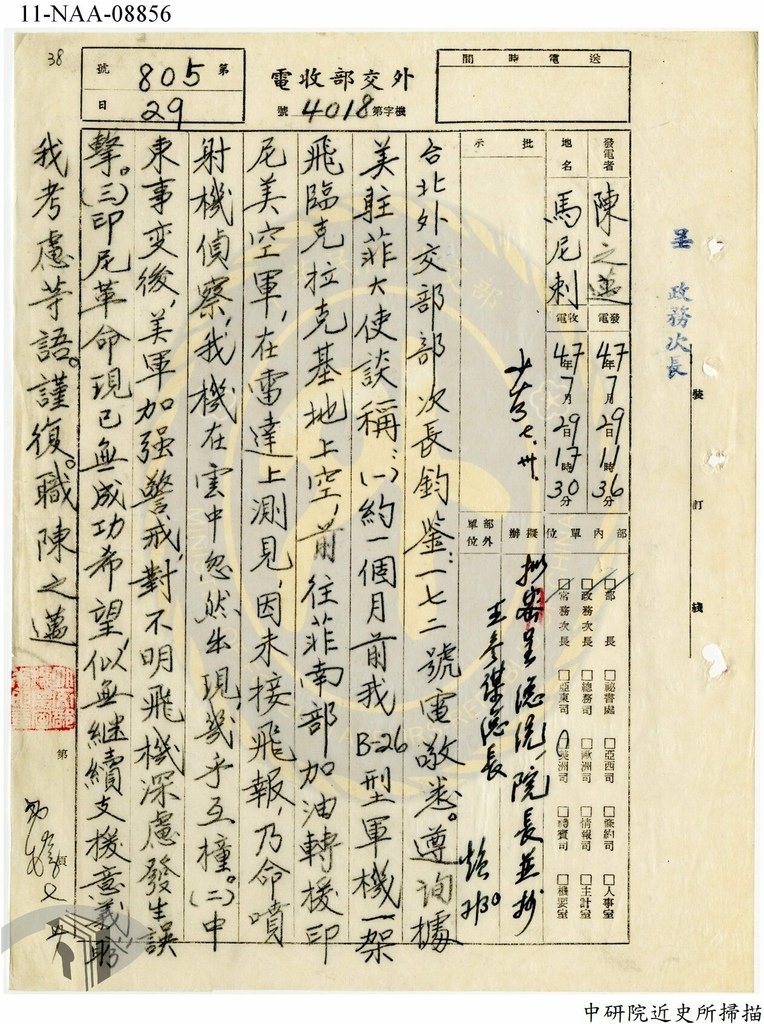 11-NAA-08856
38
外交部收電
機字第4018號
第805號
29日
送電時間
發電者
陳之邁
地名
馬尼剌
發電
47年7月29日11時36分
收電
47年7月29日17時30分
批示
部內單位
擬辦
部外單位
□部長
□政務次長
□常務次長
□祕書處
□總務司
□亞東司
□亞西司
□歐洲司
□美洲司
□條約司
□情報司
□禮賓司
□人事室
□主計室
□機要室
七.卅.
擬密呈總統、院長並抄
王參謀總長
7/30
台北外交部部次長鈞鑒:一七二號電敬悉。遵詢據
美駐菲大使談稱:(一)約一個月前我B-26型軍機一架
飛臨克拉克基地上空,前往菲南部加油轉援印
尼美空軍,在雷達上測見,因未接飛報,乃命噴
射機偵察,我機在雲中忽然出現,幾乎互撞。(二)中
東事变後,美軍加强警戒,對不明飛機深慮發生誤
擊。(三)印尼革命現已無成功希望,似無継續支援意義,盼
我考慮等語。謹復。職陳之邁
第
頁
呈 政務次長
裝
訂
綫
中研院近史所掃描